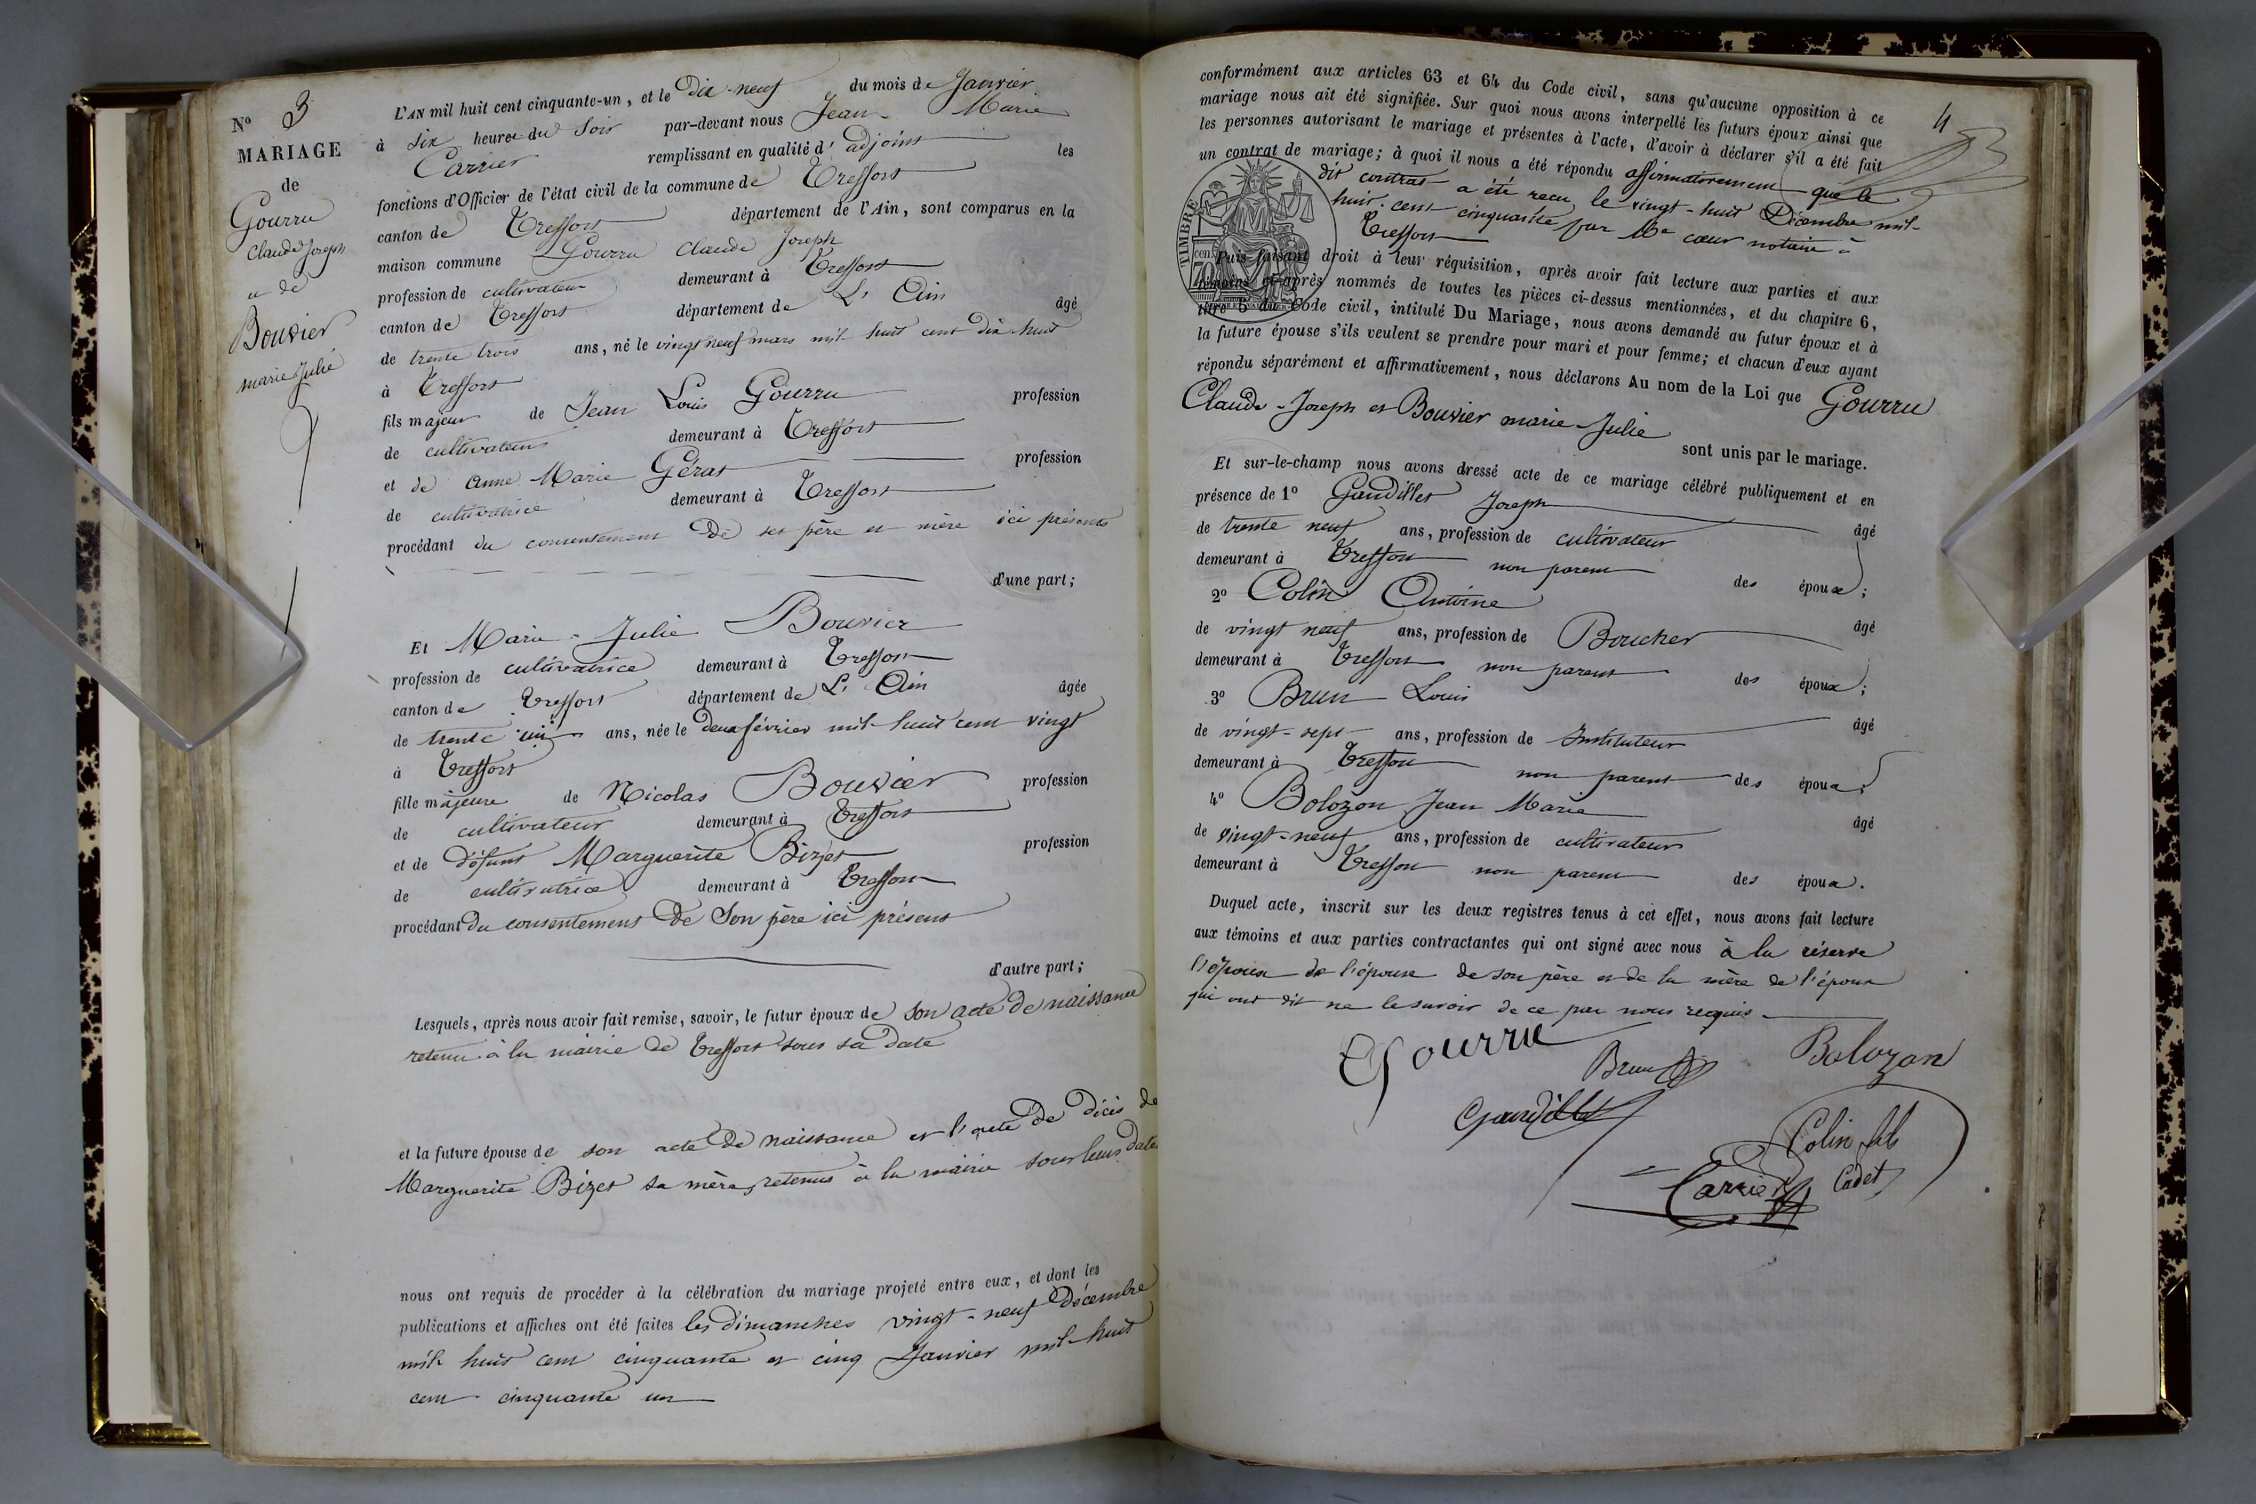 N° 3
MARIAGE
de
Gourru
Claude Joseph
et de
Bouvier
marie Julie
L'AN mil huit cent cinquante-un, et le dix-neuf du mois de Janvier
à six heures du soir par-devant nous Jean-Marie
Carrier remplissant en qualité d'adjoint les
fonctions d'Officier de l'état civil de la commune de Treffort
canton de Treffort département de l'Ain, sont comparus en la
maison commune Gourru Claude Joseph
profession de cultivateur demeurant à Treffort
canton de Treffort département de L'Ain âgé
de trente trois ans, né le vingt neuf mars mil huit cent dix huit
à Treffort
fils majeur de Jean Louis Gourru profession
de cultivateur demeurant à Treffort
et de Anne Marie Gérat profession
de cultivatrice demeurant à Treffort
procédant du consentement de ses père et mère ici présents
d'une part;
Et Marie-Julie Bouvier
profession de cultivatrice demeurant à Treffort
canton de Treffort département de L'Ain âgée
de trente un ans, née le deux février mil huit cent vingt
à Treffort
fille majeure de Nicolas Bouvier profession
de cultivateur demeurant à Treffort
et de défunt Marguerite Bizet profession
de cultivatrice demeurant à Treffort
procédant du consentement de son père ici présent
d'autre part;
Lesquels, après nous avoir fait remise, savoir, le futur époux de son acte de naissance
retenu à la mairie de Treffort sous sa date
et la future épouse de son acte de naissance et l'acte de décès de
Marguerite Bizet sa mère, retenus à la mairie sous leurs date
nous ont requis de procéder à la célébration du mariage projeté entre eux, et dont les
publications et affiches ont été faites les dimanches vingt-neuf décembre
mil huit cent cinquante et cinq Janvier mil huit
cent cinquante un
4
conformément aux articles 63 et 64 du Code civil, sans qu'aucune opposition à ce
mariage nous ait été signifiée. Sur quoi nous avons interpellé les futurs époux ainsi que
les personnes autorisant le mariage et présentes à l'acte, d'avoir à déclarer s'il a été fait
un contrat de mariage; à quoi il nous a été répondu affirmativement que le
dit contrat a été reçu le vingt-huit Décembre mil
huit cent cinquante par Me cœur notaire à
Treffort
TIMBRE
Puis faisant droit à leur réquisition, après avoir fait lecture aux parties et aux
témoins ci-après nommés de toutes les pièces ci-dessus mentionnées, et du chapitre 6,
titre 5 du Code civil, intitulé Du Mariage, nous avons demandé au futur époux et à
la future épouse s'ils veulent se prendre pour mari et pour femme; et chacun d'eux ayant
répondu séparément et affirmativement, nous déclarons Au nom de la Loi que Gourru
Claude-Joseph et Bouvier marie-Julie sont unis par le mariage.
Et sur-le-champ nous avons dressé acte de ce mariage célébré publiquement et en
présence de 1° Gaudillet Joseph âgé
de trente neuf ans, profession de cultivateur
demeurant à Treffort non parent des époux;
2° Colin Antoine âgé
de vingt neuf ans, profession de Boucher
demeurant à Treffort non parent des époux;
3° Brun Louis âgé
de vingt-sept ans, profession de Instituteur
demeurant à Treffort non parent des époux;
4° Bolozon Jean Marie âgé
de vingt-neuf ans, profession de cultivateur
demeurant à Treffort non parent des époux.
Duquel acte, inscrit sur les deux registres tenus à cet effet, nous avons fait lecture
aux témoins et aux parties contractantes qui ont signé avec nous à la réserve
de l'épouse de son père et de la mère de l'époux
qui ont dit ne le savoir de ce par nous requis
Gourru
Brun
Bolozon
Gaudillet
Colin fils
Cadet
Carrier